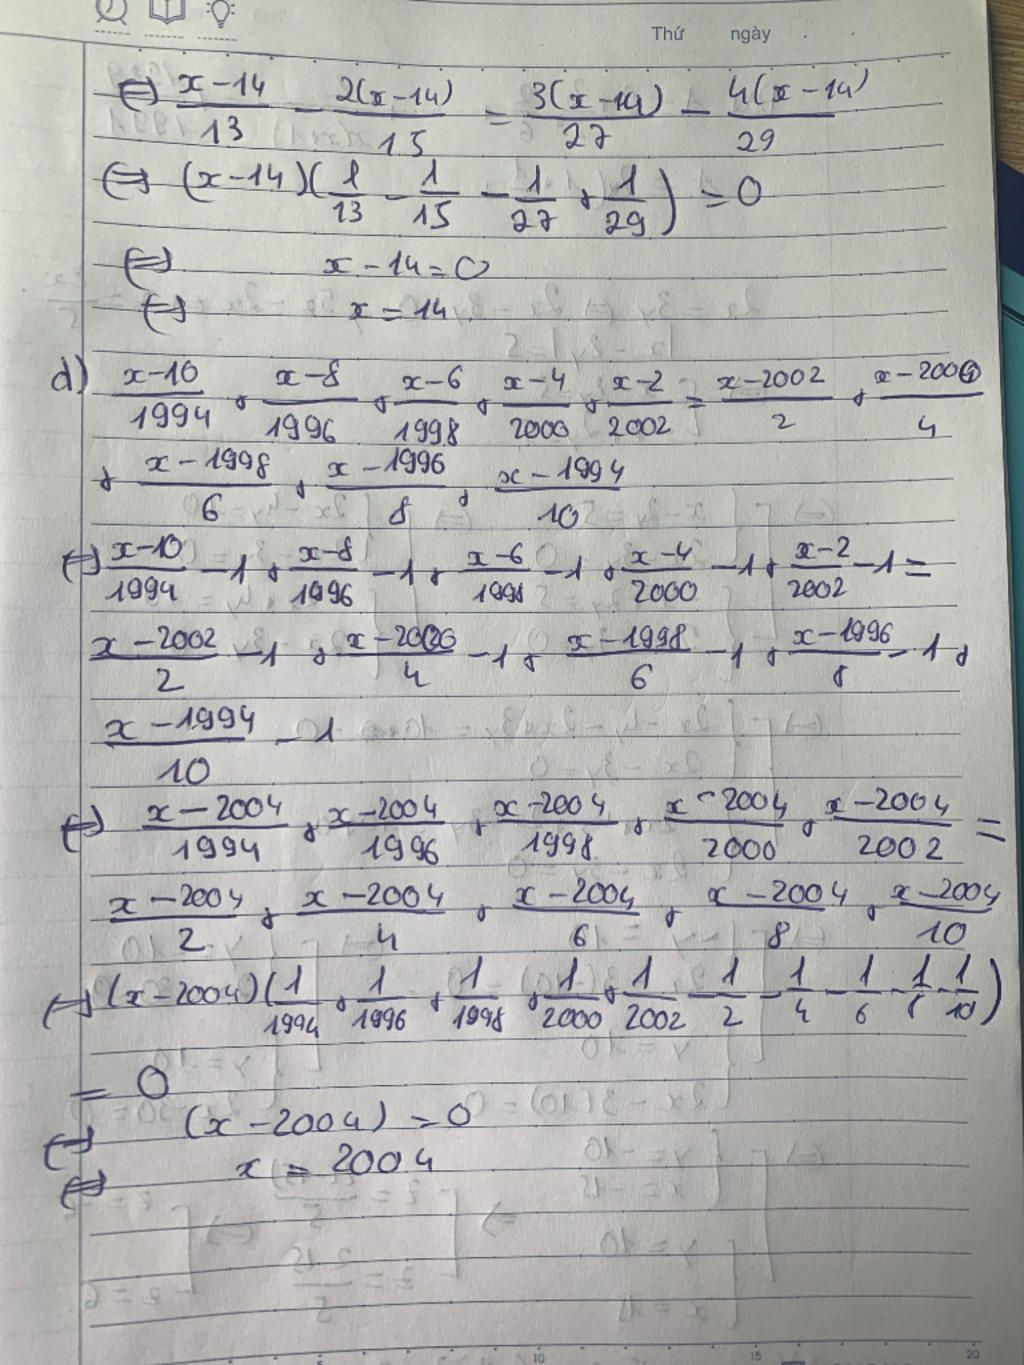 Thứ ngày
⇔ (x-14)/13 - 2(x-14)/15 = 3(x-14)/27 - 4(x-14)/29
⇔ (x-14)(1/13 - 1/15 - 1/27 + 1/29) = 0
⇔ x-14=0
⇔ x=14
d) (x-10)/1994 + (x-8)/1996 + (x-6)/1998 + (x-4)/2000 + (x-2)/2002 = (x-2002)/2 + (x-2000)/4
+ (x-1998)/6 + (x-1996)/8 + (x-1994)/10
⇔ (x-10)/1994 - 1 + (x-8)/1996 - 1 + (x-6)/1998 - 1 + (x-4)/2000 - 1 + (x-2)/2002 - 1 =
(x-2002)/2 - 1 + (x-2000)/4 - 1 + (x-1998)/6 - 1 + (x-1996)/8 - 1 +
(x-1994)/10 - 1
⇔ (x-2004)/1994 + (x-2004)/1996 + (x-2004)/1998 + (x-2004)/2000 + (x-2004)/2002 =
(x-2004)/2 + (x-2004)/4 + (x-2004)/6 + (x-2004)/8 + (x-2004)/10
⇔ (x-2004)(1/1994 + 1/1996 + 1/1998 + 1/2000 + 1/2002 - 1/2 - 1/4 - 1/6 - 1/8 - 1/10)
= 0
⇔ (x-2004) = 0
⇔ x = 2004
10 15 20